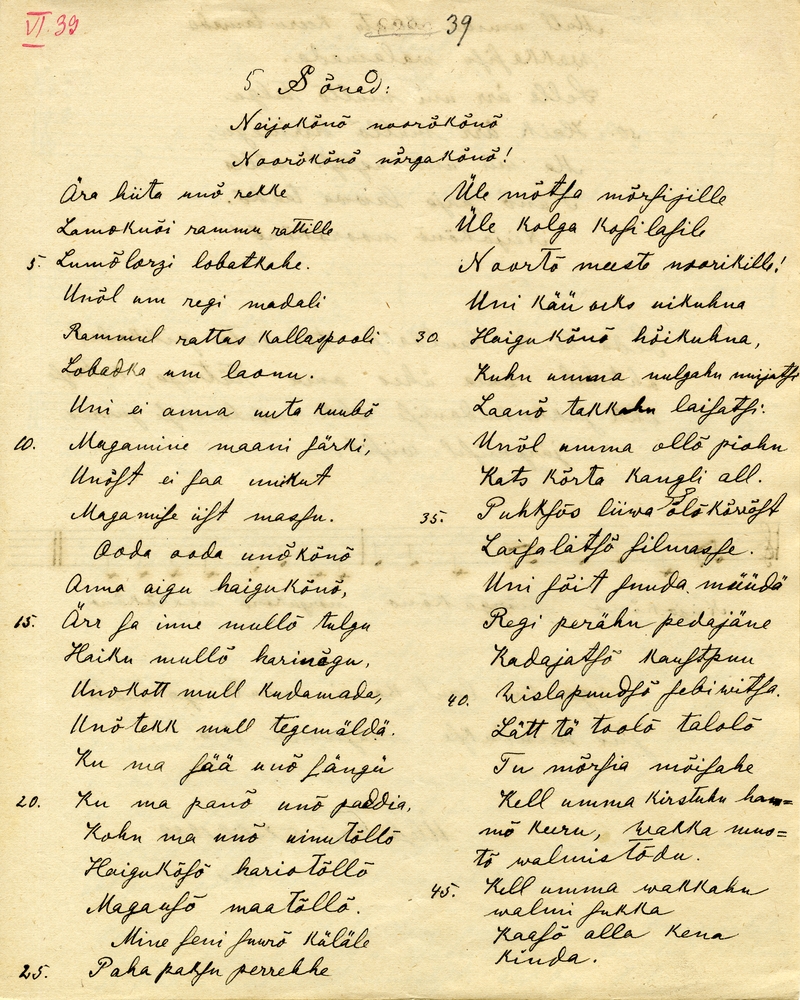 VI. 39
39
5. Sõnad:
Neijokõnõ noorõkõnõ
Noorõkõnõ nõrgakõnõ!
Ära hiita unõ rekke
Lamoknõi rammu rattille
5. Lumõlorzi lobatkahe.
Unõl um regi madali
Rammul rattas kallaspooli
Lobadka um laonu.
Uni ei anna uuta kuubõ
10. Magamine maani särki,
Unõst ei saa umikut
Magamise iist massu.
Ooda ooda unõkõnõ
Anna aigu haigukõnõ,
15. Ärr sa inne mullõ tulgu
Haiku mullõ harinõgu,
Unokott mull kudamada,
Unõtekk mull tegemäldä.
Ku ma sää unõ sängü
20. Ku ma panõ unõ paddia,
Kohn ma unõ uinutõllõ
Haigukõsõ hariotõllõ
Magausõ maatõllõ.
Mine seni suurõ küläle
25. Paha paksu perrehhe
Üle mõtsa mõrsijille
Üle kolga kosilasile
Noortõ meeste noorikille!
Uni käü uks uikuhna
30. Haigukõnõ hõikuhna,
Kuhn umma nulgahn nuijatsi
Laanõ takkahn laisatsi.
Unõl umma ollõ piohn
Kats kõrta kangli all.
35. Puhksõs liiwa olõkõrrõst
Laisalätsõ silmasse.
Uni sõit suuda müüdä
Regi perähn pedajäne
Kadajatsõ kaustpuu
40. Wislapuudsõ sebiwitsa.
Lätt tä toolõ talolõ
Tu mõrsia mõisahe
Kell umma kirstuhn ham=
mõ keeru, wakka muu=
tõ walmistõdu.
45. Kell umma wakkahn
walmi sukka
Kaasõ alla kena
kinda.